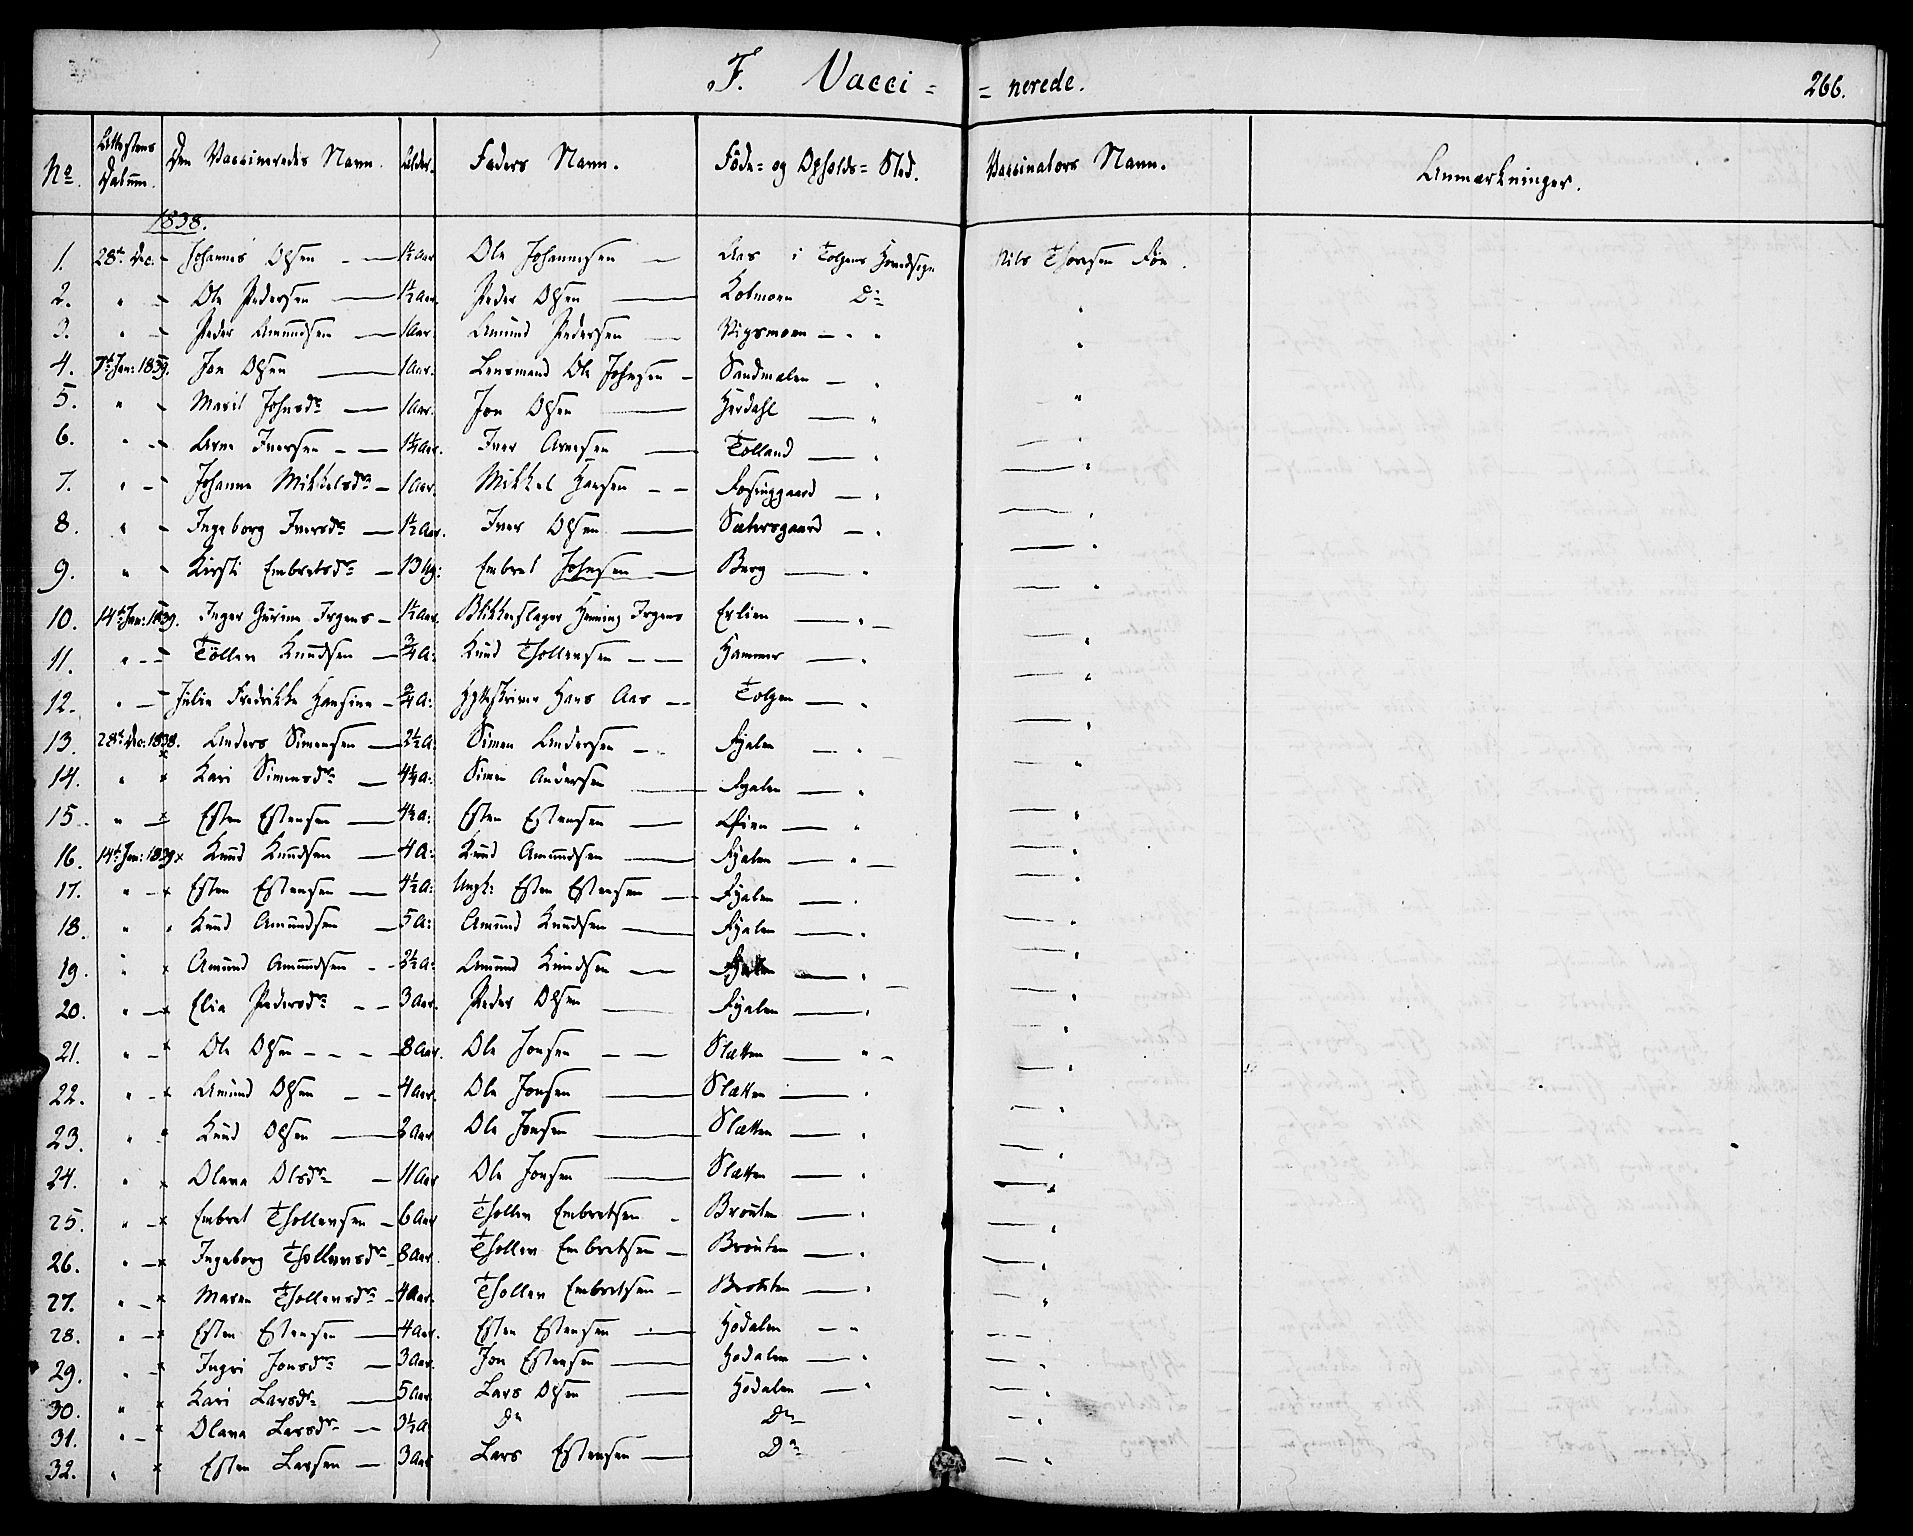 F. Vacci = = nerede. 266.
No. Attestens Datum. Den Vaccineredes Navn. Alder. Faders Navn. Føde= og Opholds= Sted. Vaccinators Navn. Anmærkninger.
1838.
1. 28de Dec. - Johannes Olsen - — 1½ Aar Ole Johannesen — Aas i Tolgens Hovedsogn Nils ThoresenFøn.
2. " - Ole Pedersen — 1½ Aar. Peder Olsen — Kolmoen Do "
3. " - Peder Amundsen — 1 Aar. Amund Pedersen — Vigsmoen - " "
4. 7de Jan: 1839. Jon Olsen — 1 Aar. Lensmand Ole Johnsen - Sandmælen — " "
5. " - Marit Johnsdr — 1 Aar. Jon Olsen — Herdahl — " "
6. " - Arne Iversen - — 1¼ Aar. Iver Arnesen — Tolland — " — "
7. " - Johanne Mikkelsdr - 1 Aar. Mikkel Hansen - — " — "
8. " - Ingeborg Iversdr — 1½ Aar. Iver Olsen — Sætersgaard — " — "
9. " - Kirsti Embretsdr - 13 Ug: Embret Johnsen — Berg — " — "
10. 14de Jan: 1839. Inger Gurine Irgens - 1½ Aar. Blikkenslager Henning Irgens Erlien — " — "
11. " - Tøllev Knudsen — ¾ A: Knud Thollevsen - — Hammer — " — "
12. " - Julie Fredrikke Hansine - ¾ A: Hytteskriver Hans Aas - - Tolgen — " — "
13. 28de Dec: 1838. Anders Simensen — 2½ A: Simen Andersen - Øyalen — " — "
14. " x Kari Simensdr — 4¼ A: Simen Andersen — Øyalen — " — "
15. " - x Esten Estensen — 4½ A: Esten Estensen — Øien — " — "
16. 14de Jan: 1839 x Knud Knudsen — 4 A: Knud Amundsen — Øyalen — " — "
17. " - x Esten Estensen — 4½ A: Ungk: Esten Estensen — Øyalen — " — "
18. " " Knud Amundsen — 5 A: Amund Knudsen — Øyalen — " — "
19. " x Amund Amundsen - - 2½ A: Amund Knudsen — Øyalen — " — "
20. " - x Elia Pedersdr - - 3 Aar. Peder Olsen — Øyalen — " — "
21. " - x Ole Olsen - - - 8 Aar. Ole Jonsen - — Slætten — " — "
22. " - x Amund Olsen - - 4 Aar. Ole Jonsen — Slætten — " — "
23. " - x Knud Olsen — 2 Aar Ole Jonsen — Slætten — " — "
24. " x Olava Olsdr - 11 Aar Ole Jonsen — Slætten — " — "
25. " - x Embret Thollevsen - 6 Aar Thollev Embretsen - Brouten — " — "
26. " - x Ingeborg Thollevsdr - 8 Aar. Thollev Embretsen - Brouten — " — "
27. " - x Maren Thollevsdr - 4 Aar. Thollev Embretsen - — " — "
28. " - x Esten Estensen — 4 Aar. Esten Estensen — Hodalen — " - "
29. " - x Ingri Jonsdr — 3 Aar. Jon Estensen — Hodalen — " — "
30. " x Kari Larsdr — 5 Aar. Lars Olsen — Hodalen — " — "
31. " - x Olava Larsdr - — 3½ A. Do Do - "
32. " x Esten Larsen — 3 Aar Lars Estensen — Do — "